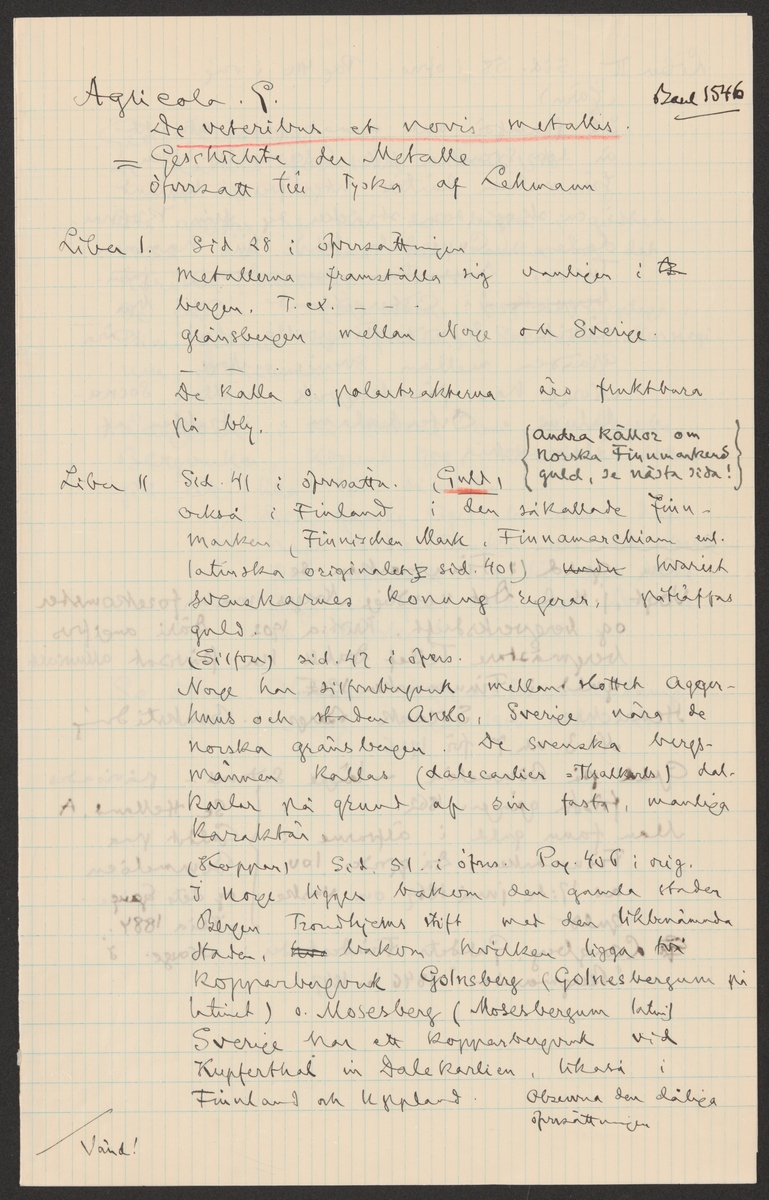 Agricola. G.
Basel 1546
De veteribus et novis metallis.
= Geschichte der Metalle
öfversatt till Tyska af Lehmann
Liber I. Sid 28 i öfversättningen
Metallerna framställa sig vanligen i
bergen. T. ex. – – .
gränsbergen mellan Norge och Sverige.
– –
De kalla o. polartrakterna äro fruktbara
på bly.
{Andra källor om
Norska Finnmarkens
guld, se nästa sida!}
Liber II Sid. 41 i öfversättn. (Guld)
också i Finland i den såkallade Finn-
marken (Finnischen Mark, Finnamarchiam enl.
latinska originalet sid. 401) hvarest
svenskarnes konung regerar, påträffas
guld.
(Silfver) sid. 42 i öfvers.
Norge har silfverbergverk mellan slottet Agger-
huus och staden Anslo, Sverige nära de
norska gränsbergen. De svenska bergs-
männen kallas (dalecarlier = Thalkerls) dal-
karlar på grund af sin fasta, manliga
karaktär
(Koppar) Sid. 51. i öfvers. Pag. 406 i orig.
I Norge ligger bakom den gamla staden
Bergen Trondhjems stift med den likbenämnda
staden, bakom hvilken ligga två
kopparbergverk Golnsberg (Golnesbergum på
latinet) o. Mosesberg (Mosesbergum latin)
Sverige har ett kopparbergverk vid
Kupferthal in Dalekarlien, likaså i
Finnland och Uppland. Observera den dåliga
öfversättningen
Vänd!